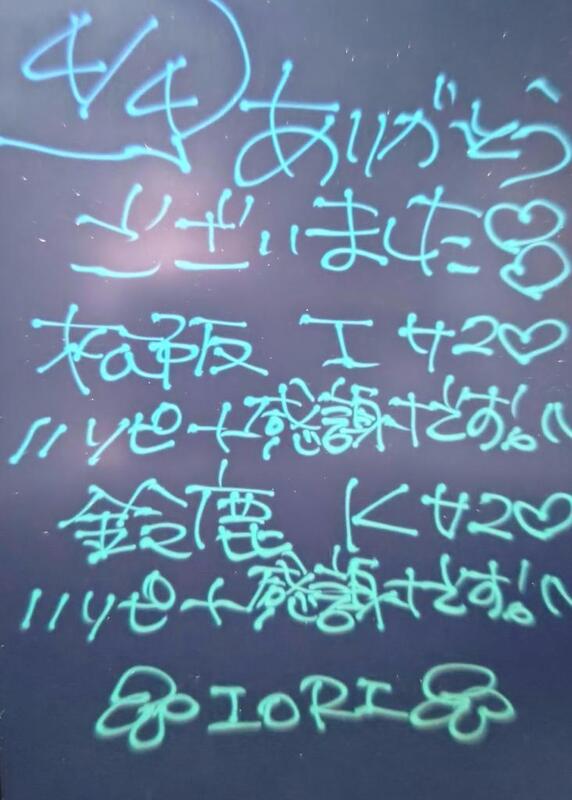 4/4 ありがとう
ございました♡♡
松阪 Iサン♡
リピート感謝です!!
鈴鹿 Kサン♡
リピート感謝です!!
IORI